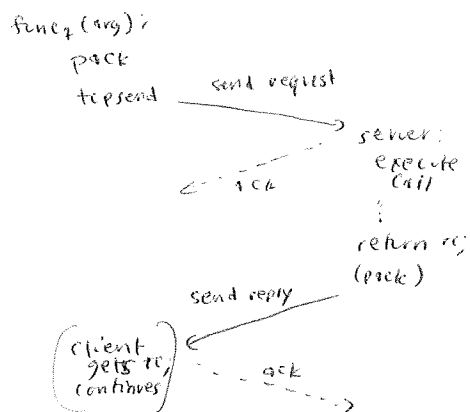 func, (arg):
pack
tcpsend
send request
server:
execute
call
ack
return rc;
(pack)
send reply
client
gets rc;
continues
ack